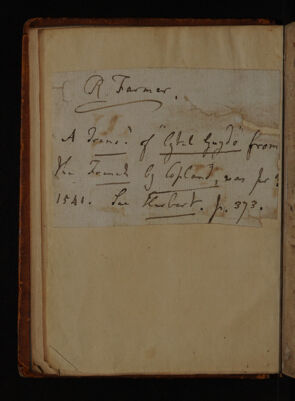 R. Farmer.
A Trans.n of "Cytel Guydo" from
the French by Copland, was pr.d
1541. See Herbert. p. 373.